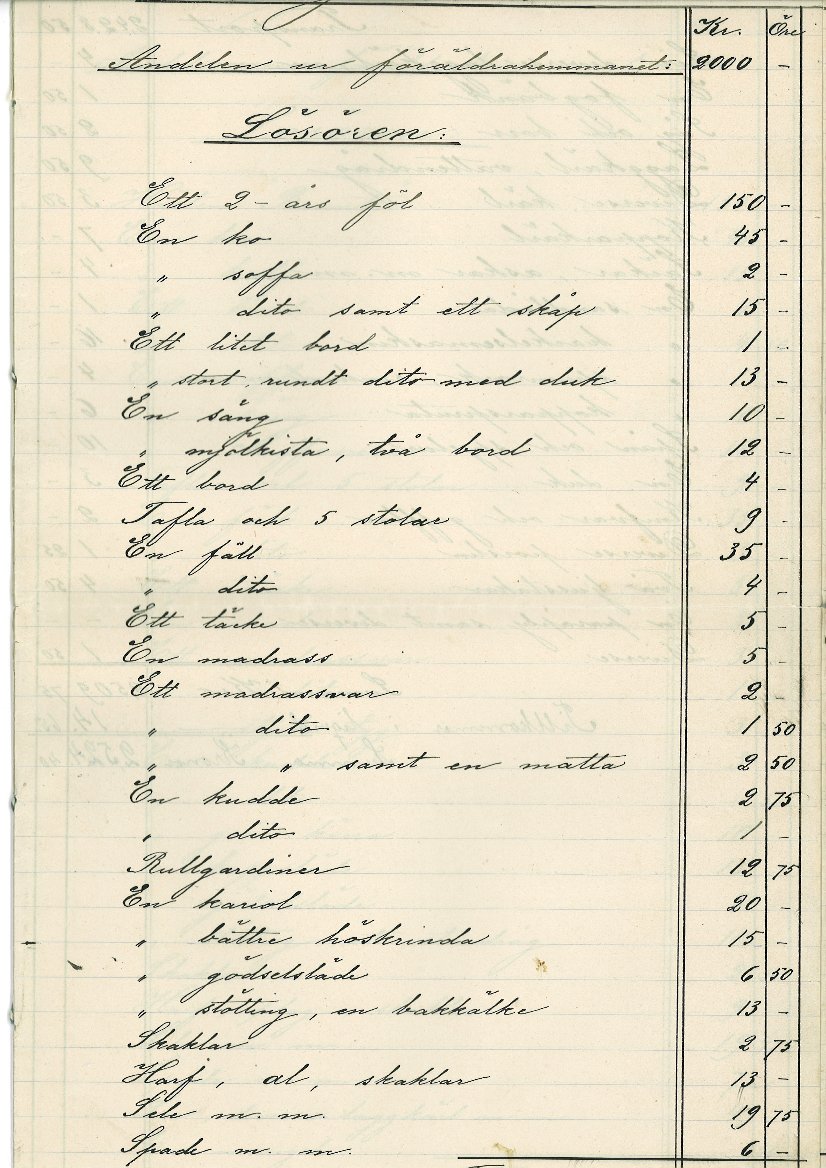 Kr. Öre
Andelen ur föräldrahemmanet: 2000 -
Lösören:
Ett 2-års föl 150 -
En ko 45 -
" soffa 2 -
" dito samt ett skåp 15 -
Ett litet bord 1 -
" stort rundt dito med duk 13 -
En säng 10 -
" mjölkista, två bord 12 -
Ett bord 4 -
Tafla och 5 stolar 9 -
En fäll 35 -
" dito 4 -
Ett täcke 5 -
En madrass 5 -
Ett madrassvar 2 -
" dito 1 50
" " samt en matta 2 50
En kudde 2 75
" dito 1 -
Rullgardiner 12 75
En kariol 20 -
" bättre höskrinda 15 -
" gödselsläde 6 50
" stötting, en bakkälke 13 -
Skaklar 2 75
Harf, al, skaklar 13 -
Sele m. m. 19 75
Spade m. m. 6 -